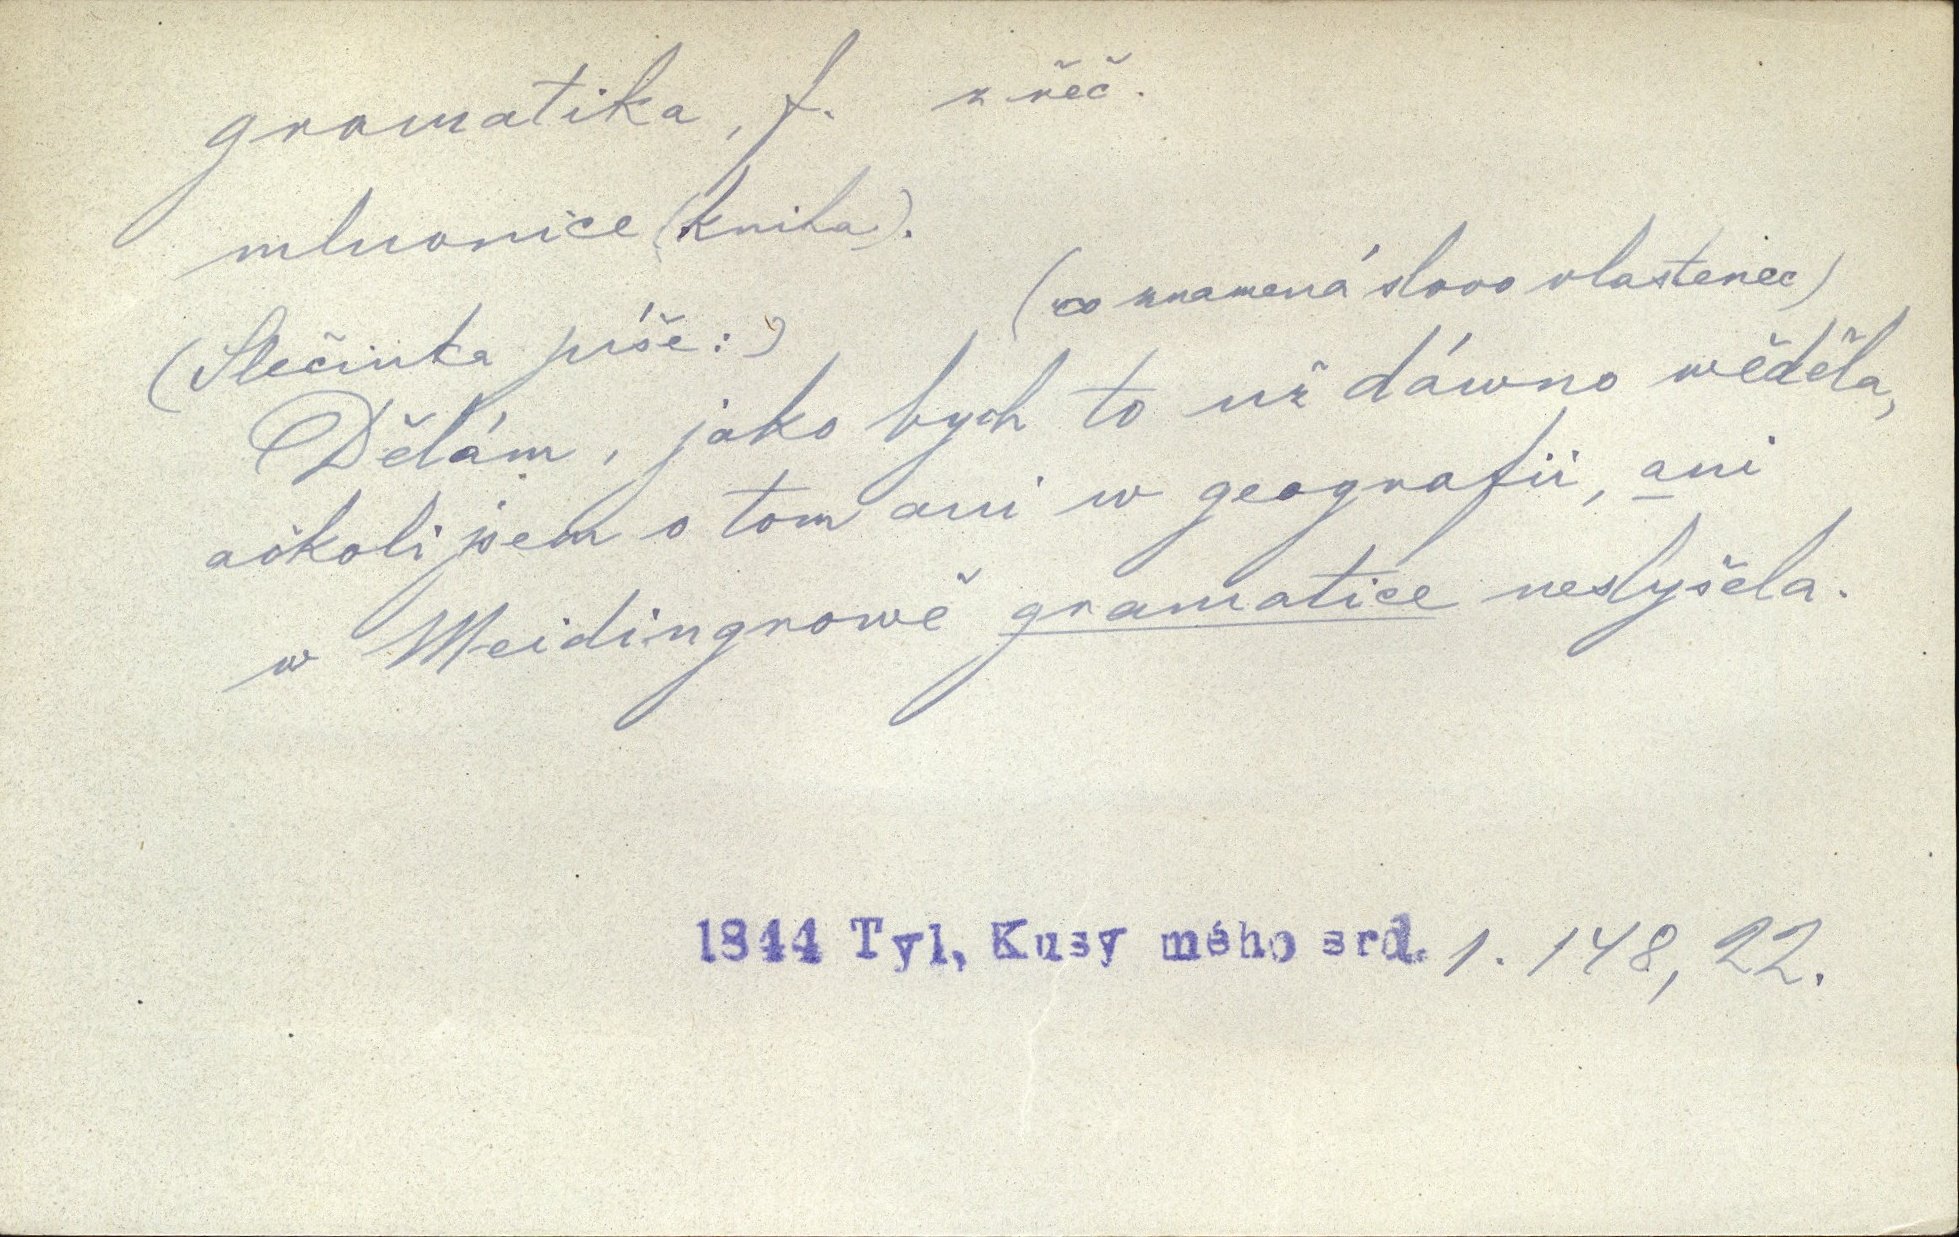 gramatika, f. z řeč.
mluvnice (kniha).
(co znamená slovo vlastenec)
(Slečinka píše:)
Dělám, jako bych to už dáwno wěděla,
ačkoli jsem o tom ani w geografii, ani
w Meidingrowě gramatice neslyšela.
1844 Tyl, Kusy mého srd. 1. 148, 22.